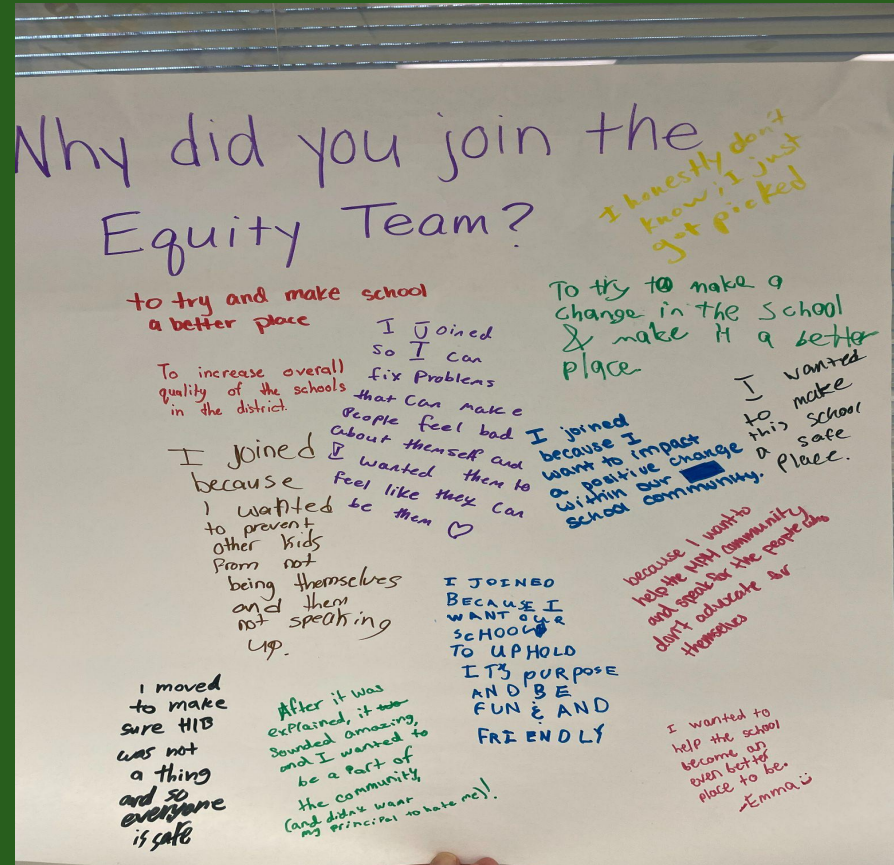 Why did you join the
Equity Team?
I honestly don't
know, I just
got picked
to try and make school
a better place
To try to make a
change in the school
& make it a better
place
To increase overall
quality of the schools
in the district.
I Joined
so I can
fix Problems
that can make
People feel bad
about themself and
I wanted them to
feel like they can
be them ♡
I wanted
to make
this school
a safe
Place.
I joined
because I
want to impact
a positive change
within our
school community.
I joined
because
I wanted
to prevent
other kids
from not
being themselves
and them
not speaking
up.
because I want to
help the MPM community
and speak for the people who
don't advocate for
themselves
I JOINED
BECAUSE I
WANT OUR
SCHOOL
TO UPHOLD
ITS PURPOSE
AND BE
FUN & AND
FRIENDLY
I moved
to make
sure HIB
was not
a thing
and so
everyone
is safe
After it was
explained, it
sounded amazing,
and I wanted to
be a part of
the community,
(and didn't want
my principal to hate me)!
I wanted to
help the school
become an
even better
place to be.
-Emma